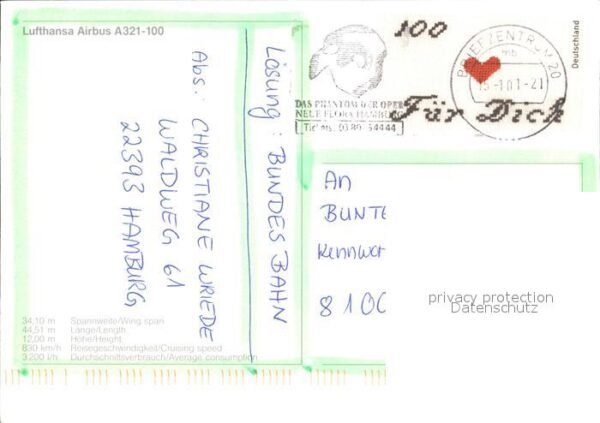 Lufthansa Airbus A321-100
Abs.: CHRISTIANE WRIEDE
WALDWEG 61
22393 HAMBURG
Lösung: BUNDES BAHN
34,10 m Spannweite/Wing span
44,51 m Länge/Length
12,00 m Höhe/Height
830 km/h Reisegeschwindigkeit/Cruising speed
3 200 l/h Durchschnittsverbrauch/Average consumption
DAS PHANTOM DER OPER
NEUE FLORA HAMBURG
BRIEFZENTRUM 20
100
Deutschland
Für Dich
An
BUNTE
Kennwor
8 100
privacy protection
Datenschutz